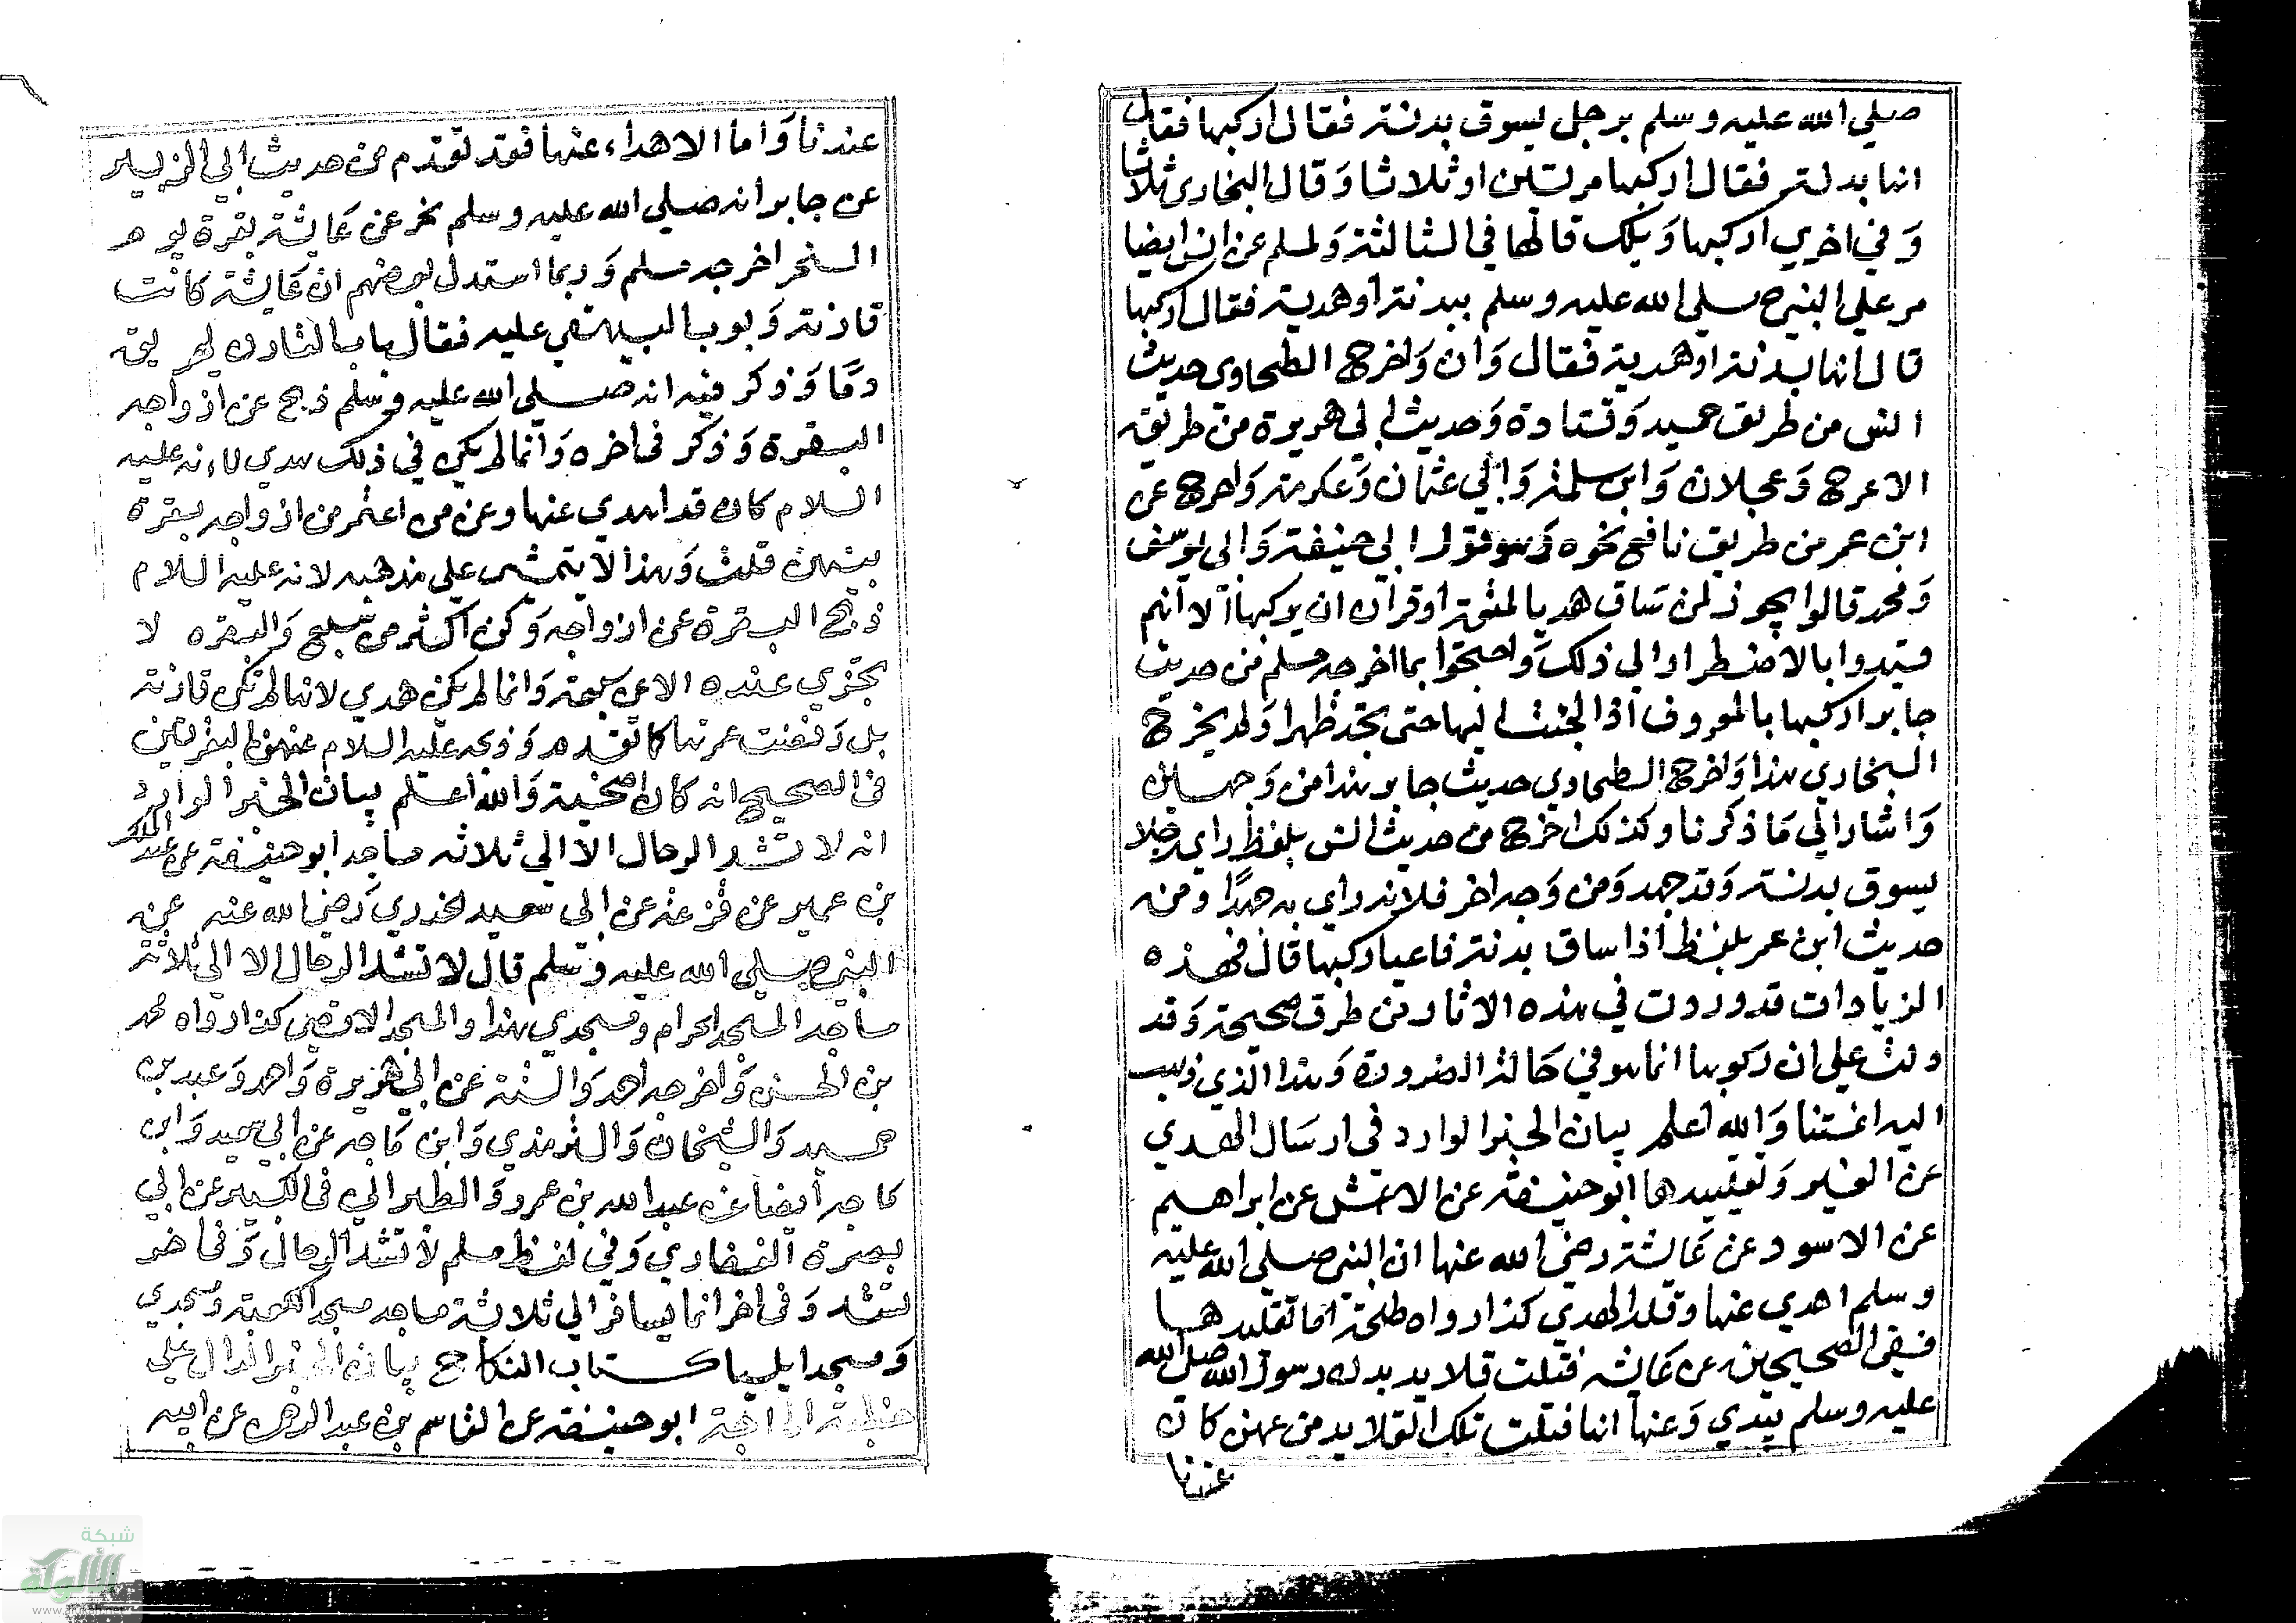 صلي الله عليه وسلم برجل يسوق بدنة فقال اركبها فقال
انها بدنة فقال اركبها مرتين او ثلاثا وَقال البخاري ثلاثا
وَفي اخري اركبها وَيلك قالها في الثالثة وَلمسلم عن انس ايضا
مر علي النبي صلي الله عليه وسلم ببدنة او هدية فقال اركبها
قال انها بدنة او هدية فقال وَان وَاخرج الطحاوي حديث
انس من طريق حميد وَقتادة وَحديث ابي هريرة من طريق
الاعرج وَعجلان وَابي سلمة وَابي عثمان وَعكرمة وَاخرج عن
ابن عمر من طريق نافع نحوه وَهو قول ابي حنيفة وَابي يوسف
وَمحمد قالوا يجوز لمن ساق هديا لمتعة او قران ان يركبها الا انهم
قيدوا بالاضطرار الي ذلك وَاحتجوا بما اخرجه مسلم من حديث
جابر اركبها بالمعروف اذا الجئت اليها حتي تجد ظهرا وَلم يخرج
البخاري هذا وَاخرج الطحاوي حديث جابر هذا من وَجهين
وَاشار الي مَا ذكرنا وكذلك اخرج من حديث انس بلفظ راي رجلا
يسوق بدنة وَقد جهد وَمن وَجه اخر فلانه راي به جهدًا ومن
حديث ابن عمر بلفظ اذا ساق بدنة فاعيا ركبها قال فهذه
الزيادات قد وردت في هذه الاثار من طرق صحيحة وَقد
دلت علي ان ركوبها انما هو في حَالة الضرورة وَهذا الذي ذهب
اليه ائمتنا وَالله اعلم بيان الخبر الوارد في ارسَال الهدي
عن الغير وَتقليدها ابو حنيفة عن الاعمش عن ابراهيم
عن الاسود عن عَائشة رضي الله عنها ان النبي صلي الله عليه
وسلم اهدي عنها وقلد الهدي كذا رواه طلحة اما تقليدها
ففي الصحيحين عن عَائشه فتلت قلايد بدن رسول الله صلي الله
عليه وسلم بيدي وَعنها انا فتلت تلك القلايد من عهن كان
عندنا
عندنا وَاما الاهداء عنها فقد تقدم من حديث ابي الزبير
عن جابر انه صلي الله عليه وسلم نحر عن عَائشة بقرة يوم
النحر اخرجه مسلم وَربما استدل بعضهم ان عَائشة كانت
قارنة وَبوب البيهقي عليه فقال باب القارن يهريق
دمًا وَذكر فيه انه صلي الله عليه وسلم ذبح عن ازواجه
البقرة وَذكر في اخره وَانما لم يكن في ذلك هدي لانه عليه
السلام كان قد اهدي عنها وعن من اعتمر من ازواجه بقرة
بينهن قلت وَهذا لا يتمشي علي مذهبه لانه عليه السلام
ذبح البقرة عن ازواجه وَكن اكثر من سبع وَالبقره لا
تجزي عنده الا عن سبعة وَانما لم يكن هدي لانها لم تكن قارنة
بل رفضت عمرتها كما تقدم وَذبحه عليه السلام عنهن البقر تبين
في الصحيح انه كان اضحية وَالله اعلم بيان الخبر الوارد
انه لا تشد الرحال الا الي ثلاثه مساجد ابو حنيفة عن عبد الملك
بن عمير عن قزعة عن ابي سعيد الخدري رَضي الله عنه عن
النبي صلي الله عليه وسلم قال لا تشد الرحال الا الي ثلاثة
مساجد المسجد الحرام ومسجدي هذا والمسجد الاقصي كذا رواه محمد
بن الحسن وَاخرجه احمد وَالستة عن ابي هريرة وَاحمد وَعبد بن
حميد وَالشيخان وَالترمذي وَابن مَاجه عن ابي سعيد وَابن
مَاجه ايضا عن عبد الله بن عمرو وَالطبراني في الكبير عن ابي
بصرة الغفاري وَفي لفظ مسلم لا تشد الرحال وَفي اخر
تشد وَفي اخر انما يسافر الي ثلاثة مساجد مسجد الكعبة وَمسجدي
وَمسجد ايليا كتاب النكاح بيان الخبر الدال علي
خطبة الحاجة ابو حنيفة عن القاسم بن عبد الرحمن عن ابيه
شبكة
الألوكة